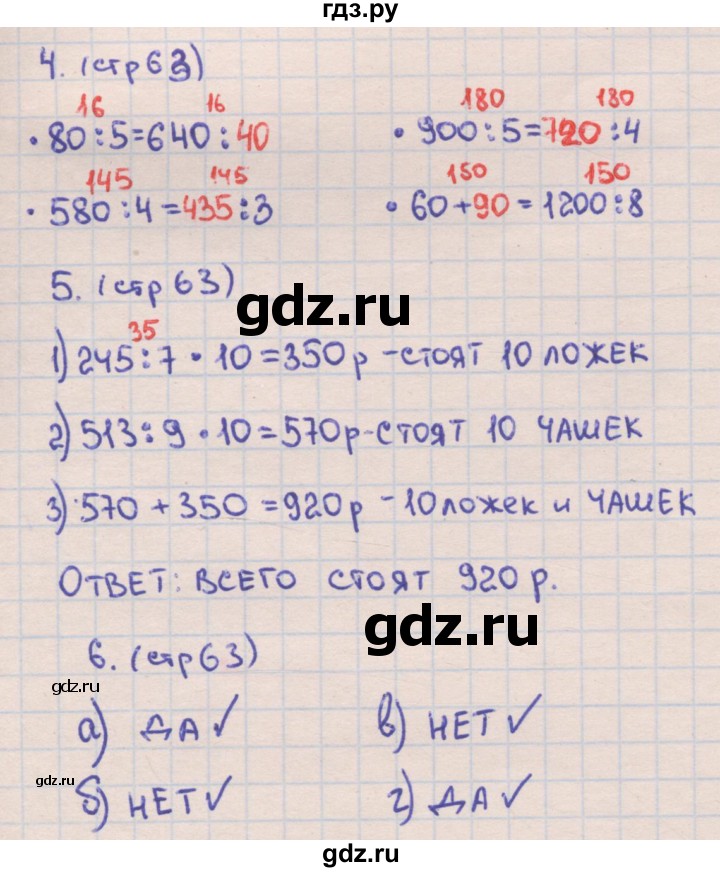 гдз.ру
4. (стр 63)
16 16
• 80 : 5 = 640 : 40
180 180
• 900 : 5 = 720 : 4
145 145
• 580 : 4 = 435 : 3
150 150
• 60 + 90 = 1200 : 8
5. (стр 63)
gdz.ru
35
1) 245 : 7 • 10 = 350 р – стоят 10 ложек
2) 513 : 9 • 10 = 570 р – стоят 10 чашек
3) 570 + 350 = 920 р – 10 ложек и чашек
Ответ: всего стоят 920 р.
gdz.ru
6. (стр 63)
gdz.ru
а) ДА ✓
в) НЕТ ✓
gdz.ru
б) НЕТ ✓
г) ДА ✓
gdz.ru